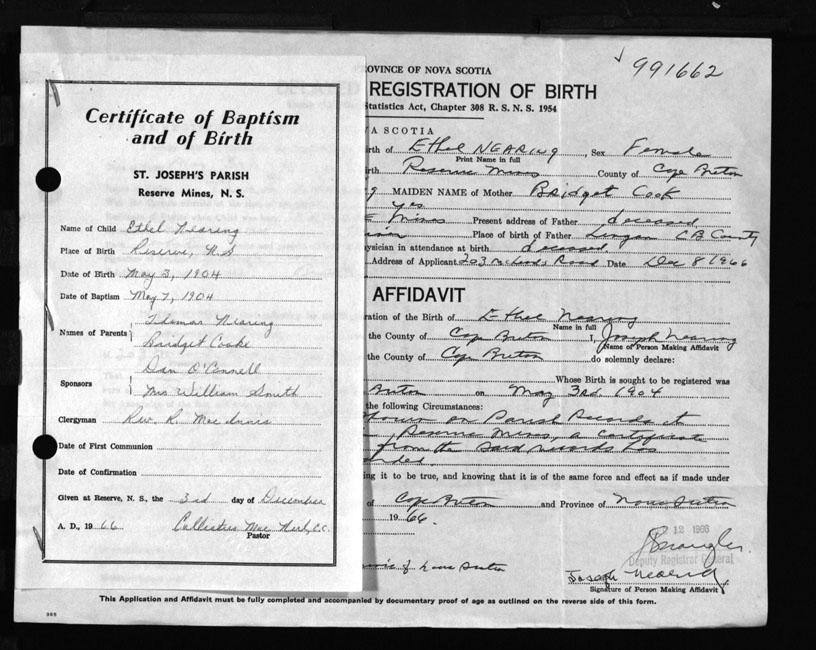 Certificate of Baptism
and of Birth
ST. JOSEPH'S PARISH
Reserve Mines, N. S.
Name of Child Ethel Nearing
Place of Birth Reserve, N.S
Date of Birth May 3, 1904
Date of Baptism May 7, 1904
Names of Parents Thomas Nearing
Bridget Cooke
Sponsors Dan O'Connell
Mrs William Smith
Clergyman Rev. R. Mac Innis
Date of First Communion
Date of Confirmation
Given at Reserve, N. S., the 3rd day of December
A. D., 19 66 Mac C.C.
Pastor
991662
OVINCE OF NOVA SCOTIA
REGISTRATION OF BIRTH
Statistics Act, Chapter 308 R. S. N. S. 1954
VA SCOTIA
irth of Ethel NEARING, Sex Female
Print Name in full
irth Reserve Mines County of Cape Breton
g MAIDEN NAME of Mother Bridget Cook
yes
E Mines Present address of Father deceased
Place of birth of Father Lingan C B County
ysician in attendance at birth deceased
Address of Applicant 203 Road Date Dec 8 1966
AFFIDAVIT
ration of the Birth of Ethel Nearing
Name in full
the County of Cape Breton I, Joseph Nearing
Name of Person Making Affidavit
the County of Cape Breton do solemnly declare:
Whose Birth is sought to be registered was
Breton on May 3rd 1904
the following Circumstances:
shown on Parish Records at
Reserve Mines, a certificate
from the said records has
ng it to be true, and knowing that it is of the same force and effect as if made under
of Cape Breton and Province of Nova Scotia
19 66.
12 1966
Deputy Registrar General
of Nova Scotia
Joseph Nearing
Signature of Person Making Affidavit
This Application and Affidavit must be fully completed and accompanied by documentary proof of age as outlined on the reverse side of this form.